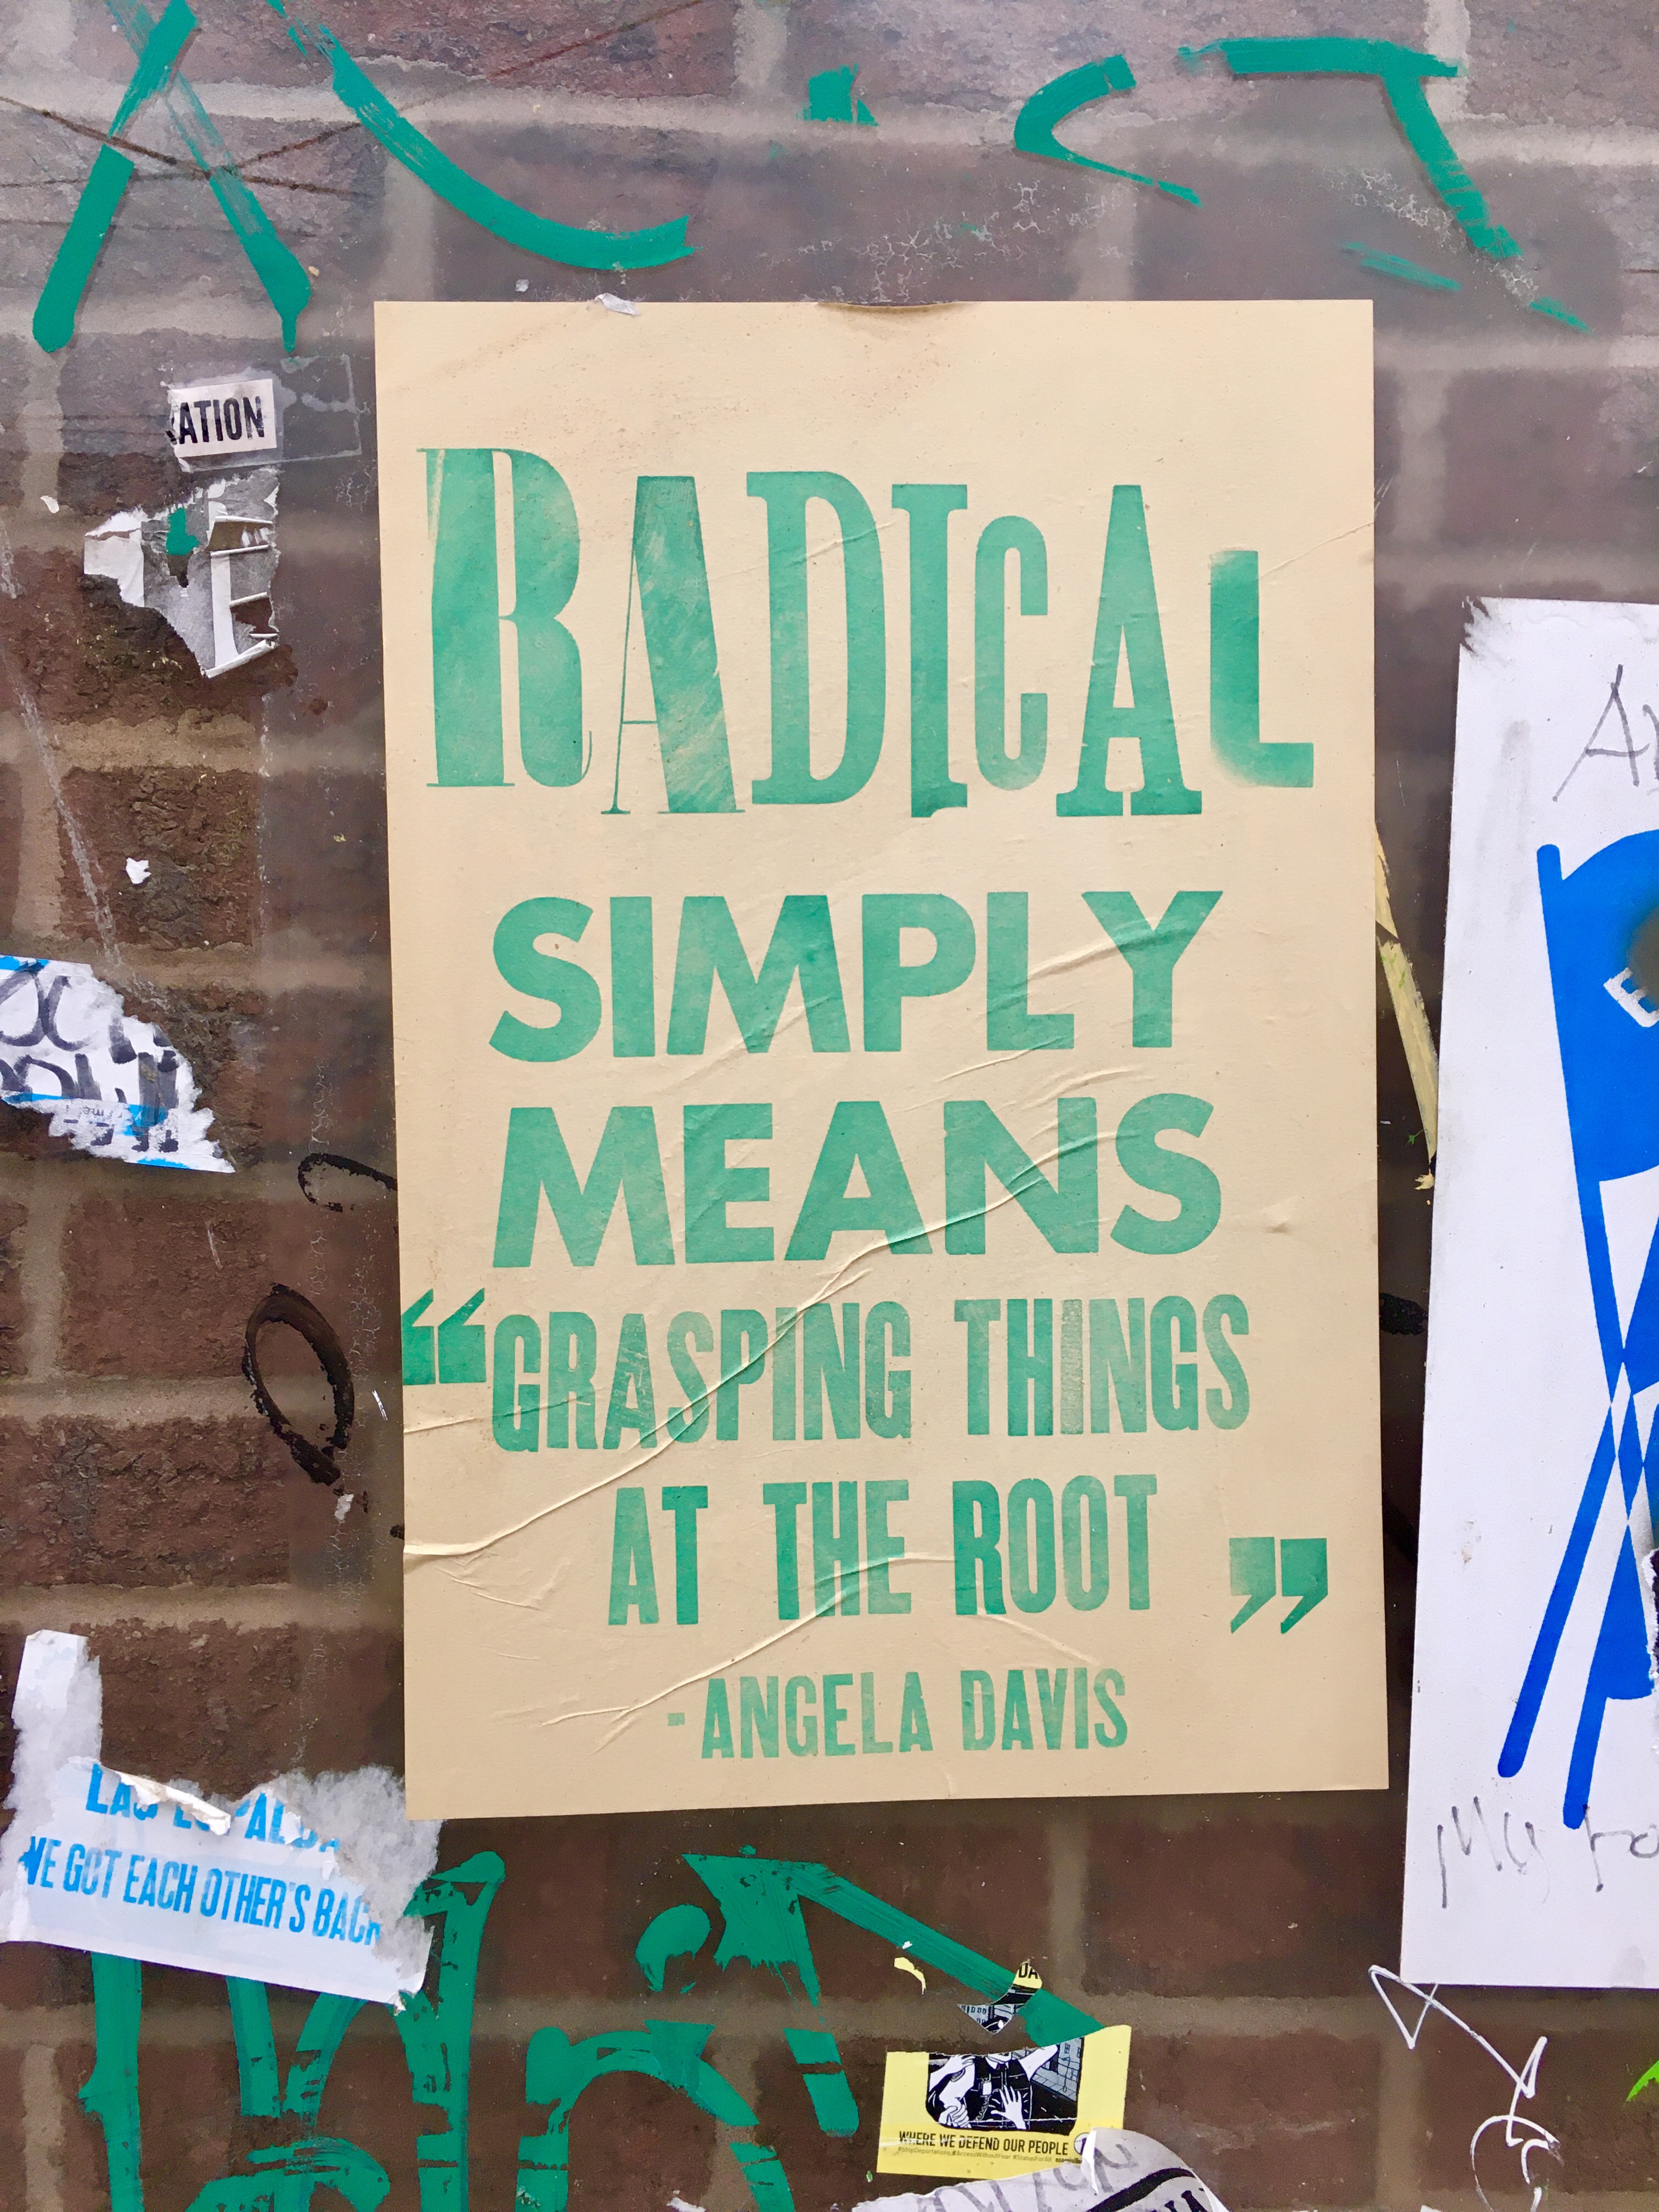 ATION
RADICAL
SIMPLY
MEANS
“GRASPING THINGS
AT THE ROOT”
-ANGELA DAVIS
WE GOT EACH OTHER'S BACK
WHERE WE DEFEND OUR PEOPLE